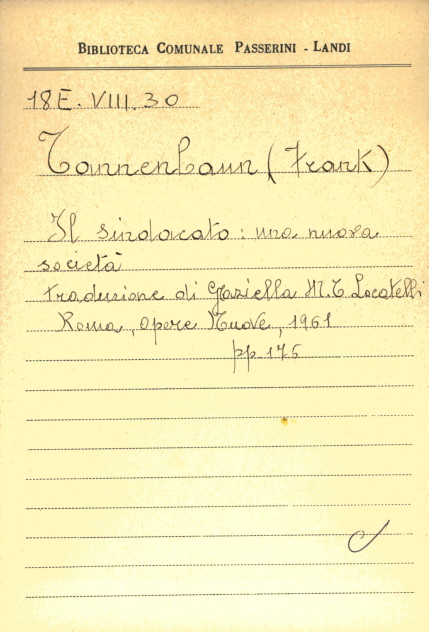 BIBLIOTECA COMUNALE PASSERINI - LANDI
18E. VIII. 30
Tannenbaun (Frank)
Il sindacato : una nuova
società
traduzione di Graziella M. T. Locatelli
Roma, Opere Nuove, 1961
pp 175